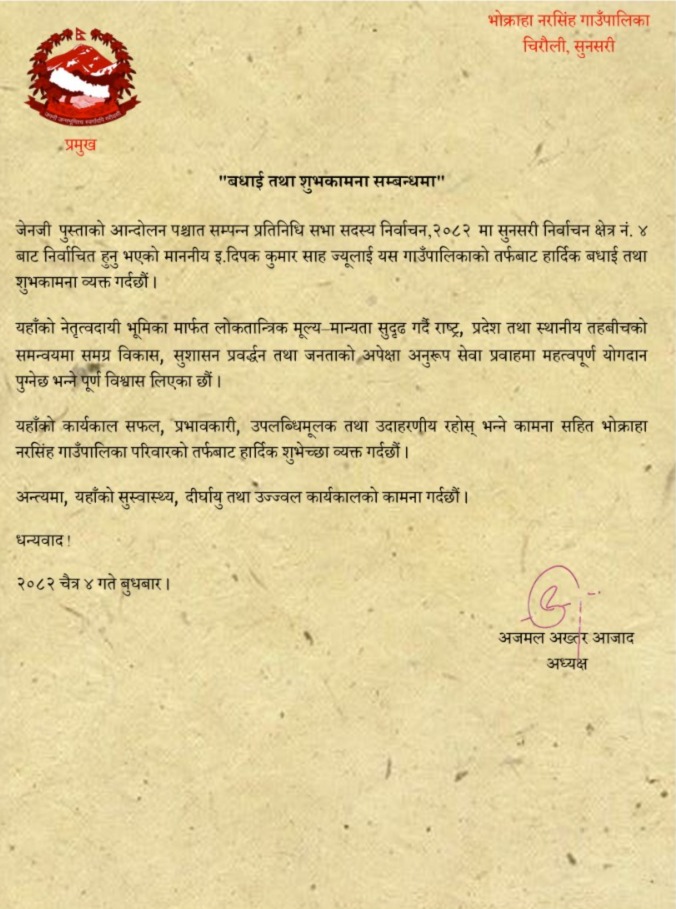 भोक्राहा नरसिंह गाउँपालिका
चिरौली, सुनसरी
प्रमुख
"बधाई तथा शुभकामना सम्बन्धमा"
जेनजी पुस्ताको आन्दोलन पश्चात सम्पन्न प्रतिनिधि सभा सदस्य निर्वाचन,२०८२ मा सुनसरी निर्वाचन क्षेत्र नं. ४
बाट निर्वाचित हुनु भएको माननीय इ.दिपक कुमार साह ज्यूलाई यस गाउँपालिकाको तर्फबाट हार्दिक बधाई तथा
शुभकामना व्यक्त गर्दछौं ।
यहाँको नेतृत्वदायी भूमिका मार्फत लोकतान्त्रिक मूल्य–मान्यता सुदृढ गर्दै राष्ट्र, प्रदेश तथा स्थानीय तहबीचको
समन्वयमा समग्र विकास, सुशासन प्रवर्द्धन तथा जनताको अपेक्षा अनुरूप सेवा प्रवाहमा महत्वपूर्ण योगदान
पुग्नेछ भन्ने पूर्ण विश्वास लिएका छौं ।
यहाँको कार्यकाल सफल, प्रभावकारी, उपलब्धिमूलक तथा उदाहरणीय रहोस् भन्ने कामना सहित भोक्राहा
नरसिंह गाउँपालिका परिवारको तर्फबाट हार्दिक शुभेच्छा व्यक्त गर्दछौं ।
अन्त्यमा, यहाँको सुस्वास्थ्य, दीर्घायु तथा उज्ज्वल कार्यकालको कामना गर्दछौं ।
धन्यवाद !
२०८२ चैत्र ४ गते बुधबार ।
अजमल अख्तर आजाद
अध्यक्ष